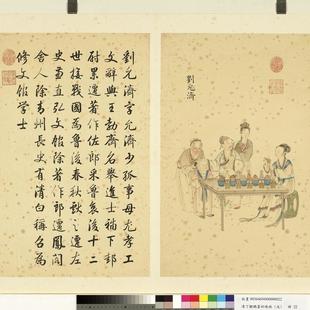 劉允濟
劉允濟字允濟少孤事母尤孝工
文辭與王勃齊名舉進士補下邽
尉累遷著作佐郎采魯哀後十二
世接戰國為魯後春秋獻之遷左
史兼直弘文館除著作郎遷鳳閣
舍人除青州長史有清白稱召為
修文館學士